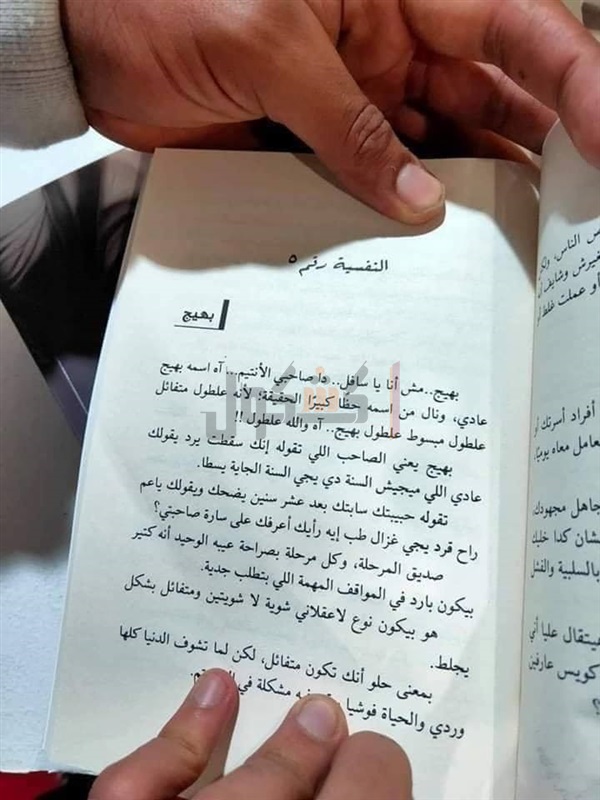 النفسية رقم ٥
بهيج
بهيج..مش أنا يا سافل.. دا صاحبي الأنتيم... آه اسمه بهيج
عادي، ونال من اسمه حظًا كبيرًا الحقيقة؛ لأنه علطول متفائل
علطول مبسوط علطول بهيج.. آه والله علطول!!
بهيج يعني الصاحب اللي تقوله إنك سقطت يرد يقولك
عادي اللي ميجيش السنة دي يجي السنة الجاية يسطا.
تقوله حبيبتك سابتك بعد عشر سنين يضحك ويقولك ياعم
راح قرد يجي غزال طب إيه رأيك أعرفك على سارة صاحبتي؟
صديق المرحلة، وكل مرحلة بصراحة عيبه الوحيد أنه كتير
بيكون بارد في المواقف المهمة اللي بتتطلب جدية.
هو بيكون نوع لاعقلاني شوية لا شويتين ومتفائل بشكل
يجلط.
بمعنى حلو أنك تكون متفائل، لكن لما تشوف الدنيا كلها
وردي والحياة فوشيا مشكلة في
س الناس، ولكن
خيرش وشايف أن
أو عملت غلط
أفراد أسرتك
تعامل معاه يوميًا
جاهل مجهودك،
شان كدا خليك
بالسلبية والفشل
هيتقال عليا أني
كويس عارفين
؟
كشكول